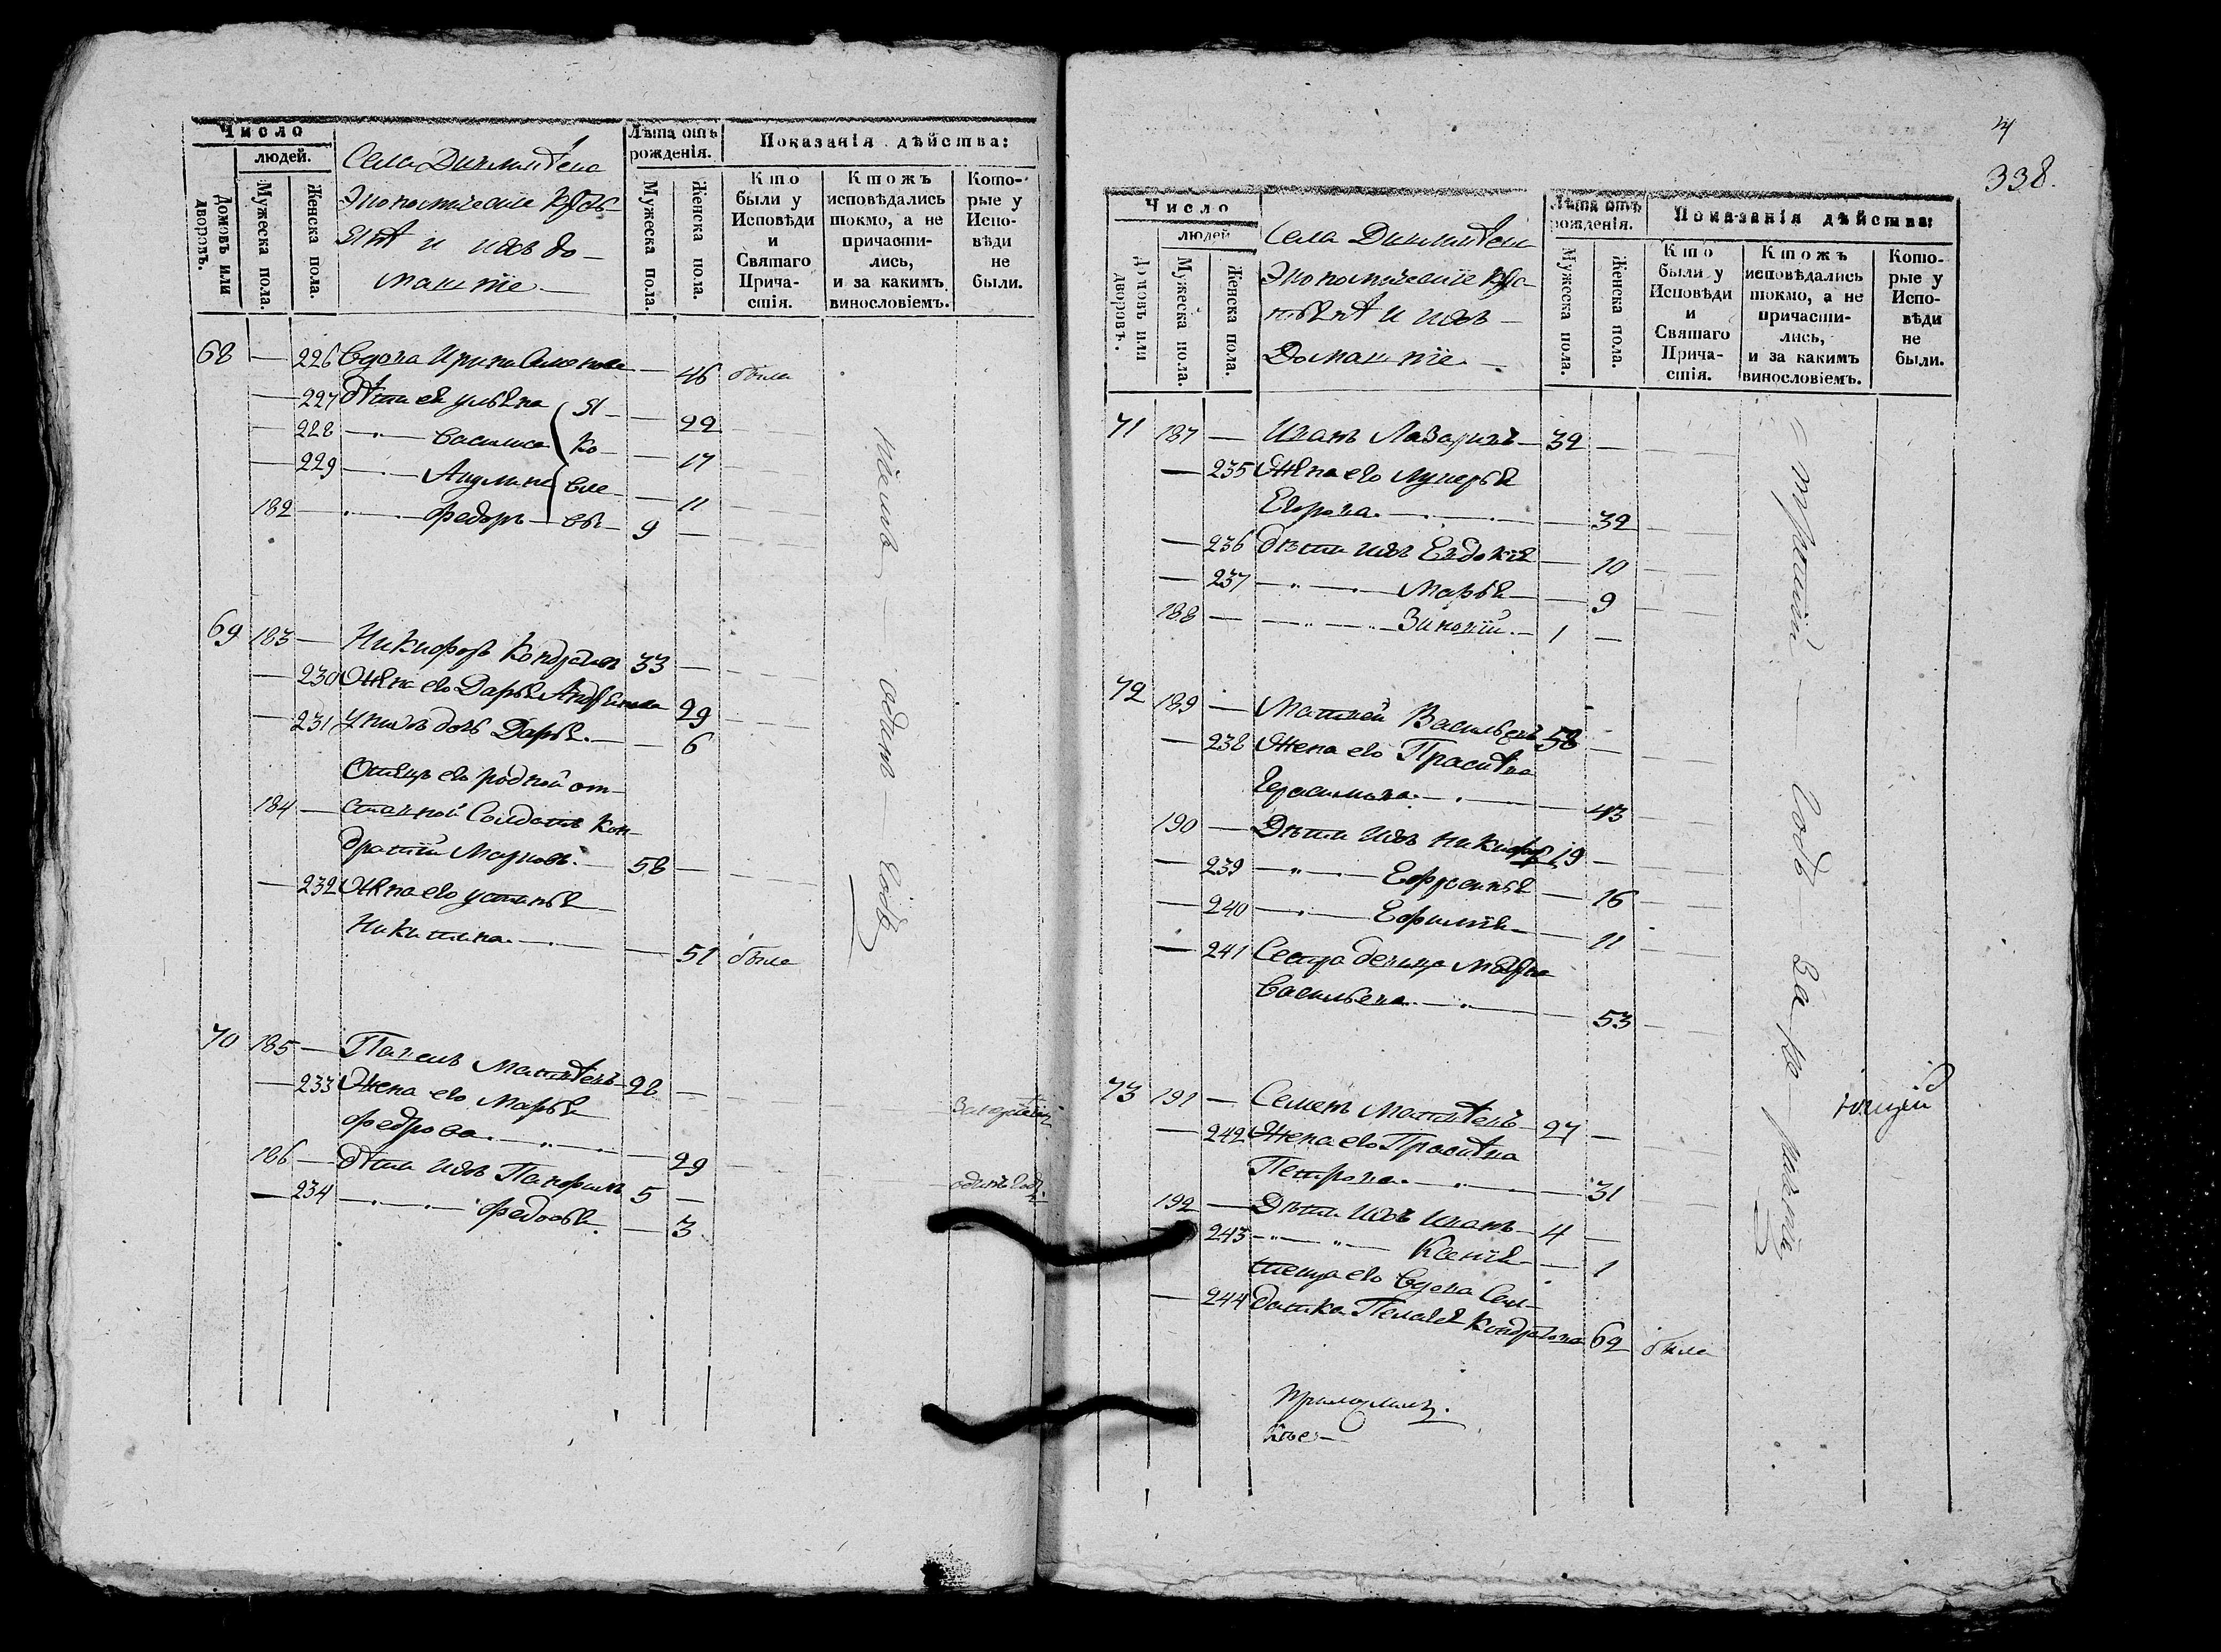 Число
людей.
Домовъ или дворовъ.
Мужеска пола.
Женска пола.
Села
Экономическіе Кресть-
янѣ и ихъ до-
машніе
Лѣта отъ рожденія.
Мужеска пола.
Женска пола.
Показанія дѣйства:
Кто были у Исповѣди и Святаго Прича-стія.
Ктожъ исповѣдались токмо, а не причасти-лись, и за какимъ винословіемъ.
Кото-рые у Испо-вѣди не были.
68 — 226 Вдова Ирина Семенова — 46 была
— 227 Дѣти ея Ульяна Я- — 22
— 228 —„— Василиса Ко- — 17
— 229 —„— Акулина вле- — 11
182 —„— Федоръ вы 9 —
69 183 — Никифоръ Кондратьевъ 33 —
— 230 Жена его Дарья Андреянова — 29
— 231 У нихъ дочь Дарья — 6
Отецъ его родной от-
184 — ставной Солдатъ Кон-
дратій Марковъ 58 —
— 232 Жена его Устинья
Никитина — 51 была
70 185 — Павелъ Матвѣевъ 28 —
— 233 Жена его Марья
Федрова — 29
186 — Дѣти ихъ Панфилъ 5 —
— 234 —„— Федосья — 3
одинъ — годъ
одинъ годъ
338.
Число
людей
Домовъ или дворовъ.
Мужеска пола.
Женска пола.
Села
Экономическіе Кре-
стьянѣ и ихъ
Домашніе
Лѣта отъ рожденія.
Мужеска пола.
Женска пола.
Показанія дѣйства:
Кто были у Исповѣди и Святаго Прича-стія.
Ктожъ исповѣдались токмо, а не причасти-лись, и за какимъ винословіемъ.
Кото-рые у Испо-вѣди не были.
71 187 — Иванъ Лазаревъ 32 —
— 235 Жена его Лукерья
Егорова — 32
— 236 Дѣти ихъ Евдокія — 10
— 237 —„— Марья — 9
188 — —„— Зиновій 1 —
72 189 — Матвей Васильевъ 58 —
— 238 Жена его Прасковья
Герасимова — 43
190 — Дѣти ихъ Никифоръ 19 —
— 239 —„— Ефросинья — 16
— 240 —„— Ефимія — 11
— 241 Сестра девица Мавра
Васильева — 53
73 191 — Семенъ Матвѣевъ 27 —
— 242 Жена его Прасковья
Петрова — 31
192 — Дѣти ихъ Иванъ 4 —
— 243 —„— Ксенія — 1
теща его вдова Сол-
— 244 датка Пелагея Кондратова 62 была
годъ